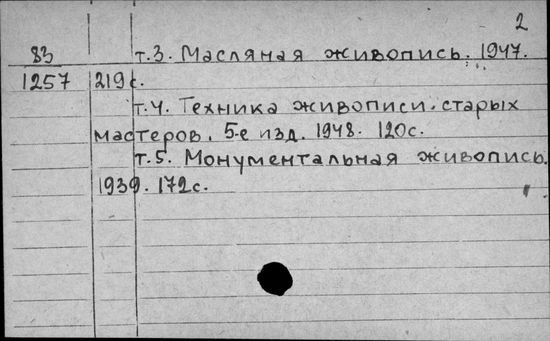 2
83 т.3. Масляная живопись. 1947.
1257 219с.
т.4. Техника живописи старых
мастеров. 5-е изд. 1948. 120с.
т.5. Монументальная живопись.
1939. 172с.